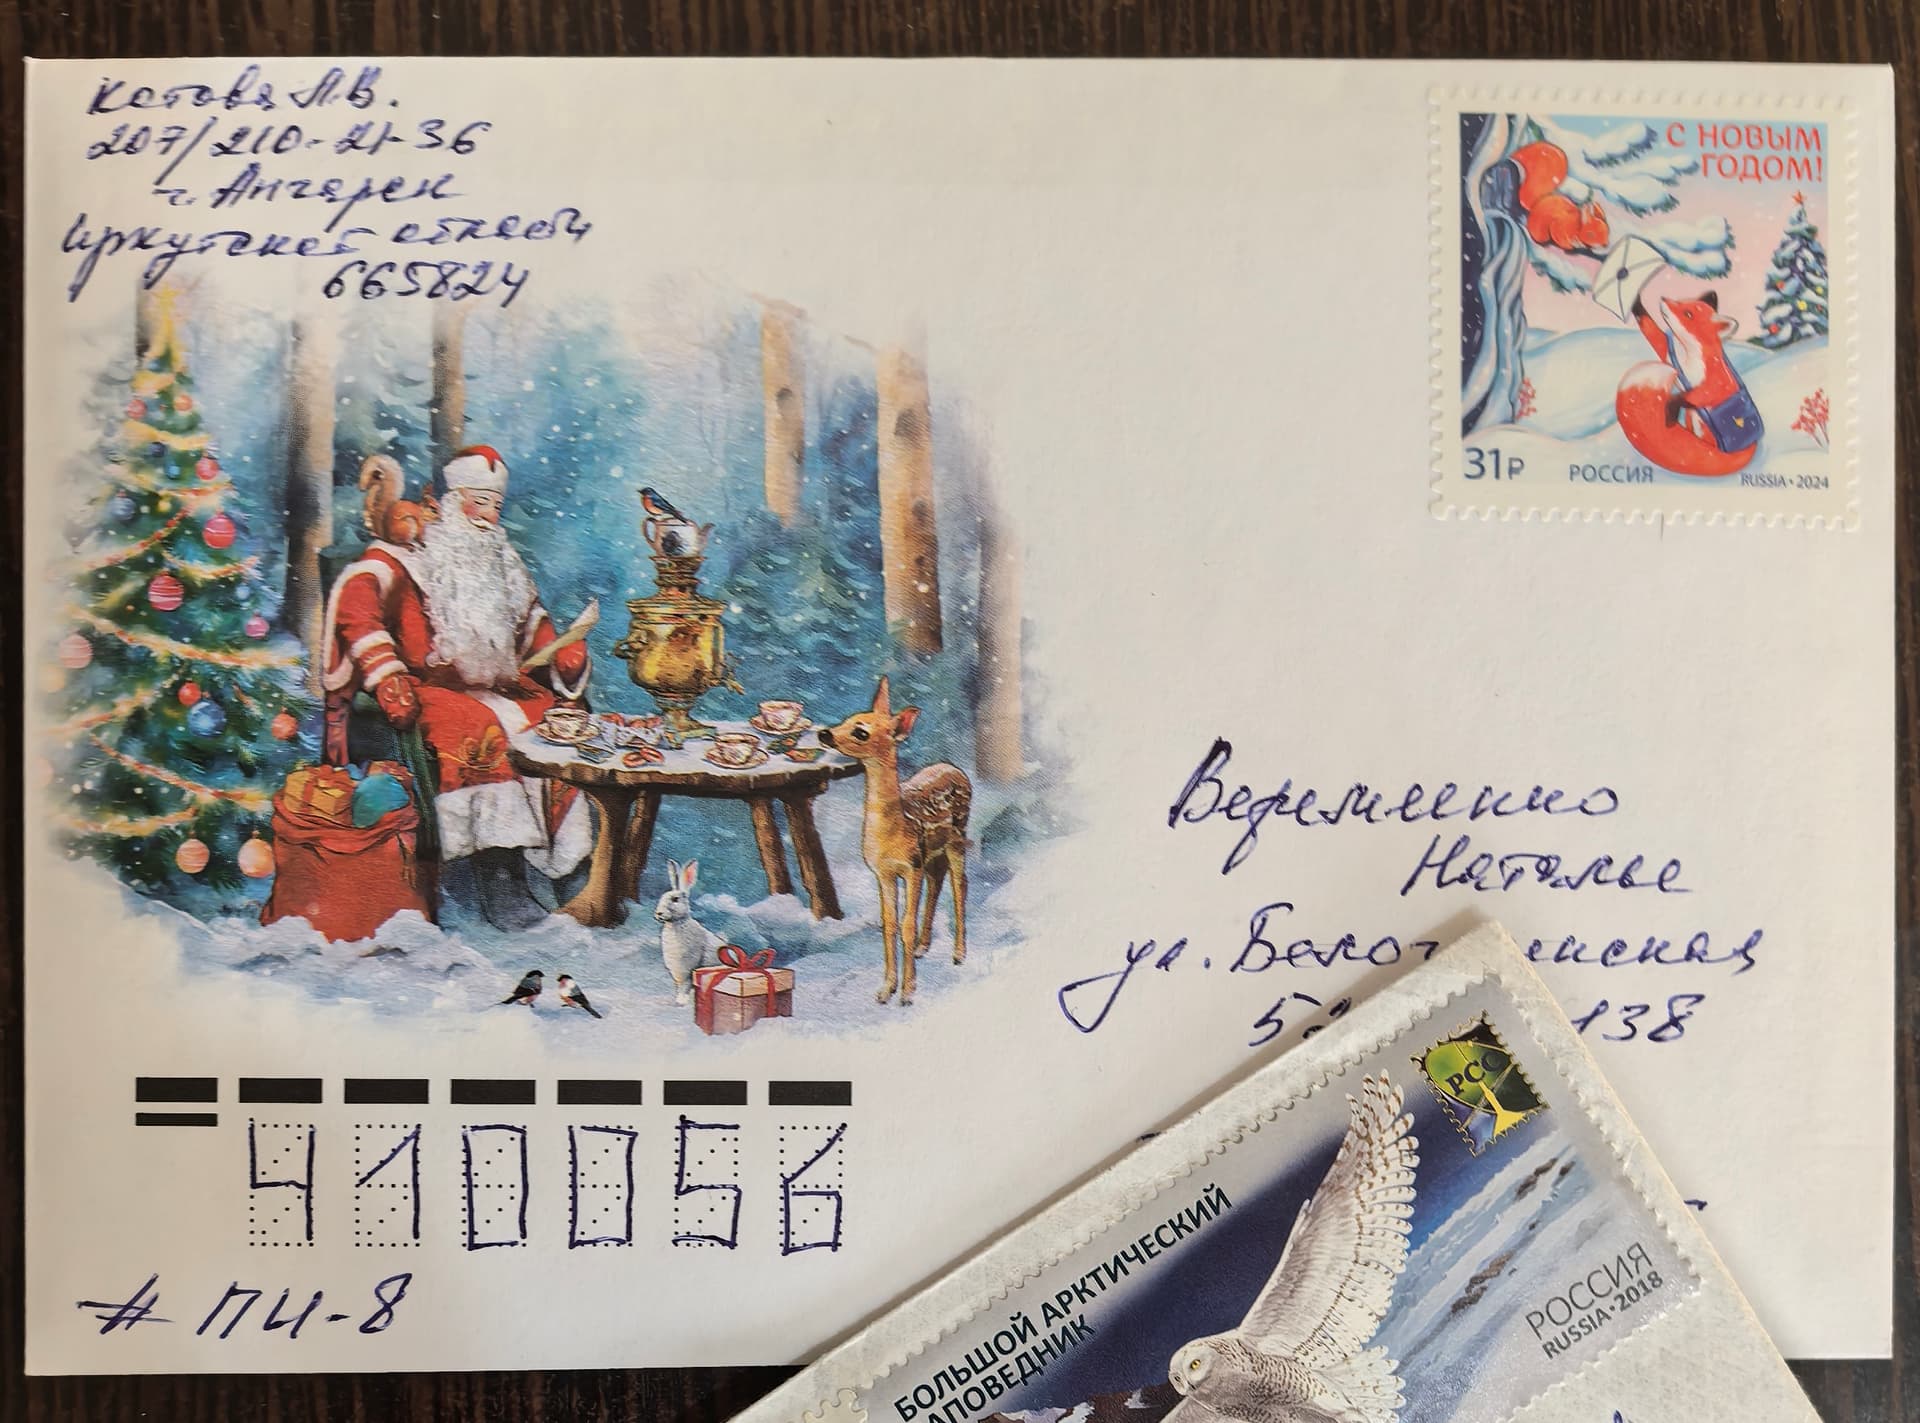 Котова Л.В.
207/210-21-36
г. Ангарск
Иркутской области
665824
С НОВЫМ
ГОДОМ!
31₽ РОССИЯ RUSSIA • 2024
Веремеенко
Наталье
ул.
138
410056
# ПИ-8
РСС
БОЛЬШОЙ АРКТИЧЕСКИЙ
АПОВЕДНИК
РОССИЯ
RUSSIA • 2018